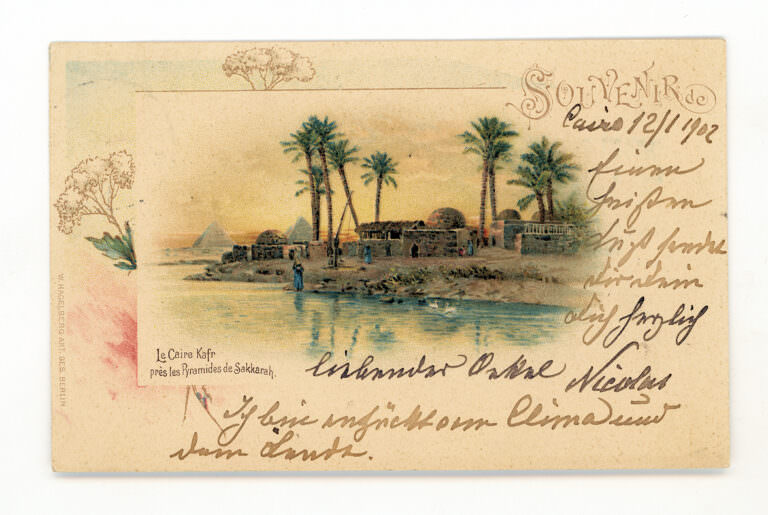 SOUVENIR de
Cairo 12/1 1902
Einen
heißen
Kuß sendet
dir dein
dich herzlich
liebender Onkel Nicolas
Ich bin entzückt vom Clima und
dem Lande.
Le Caire Kafr
près les Pyramides de Sakkarah.
W. HAGELBERG ART. GES. BERLIN